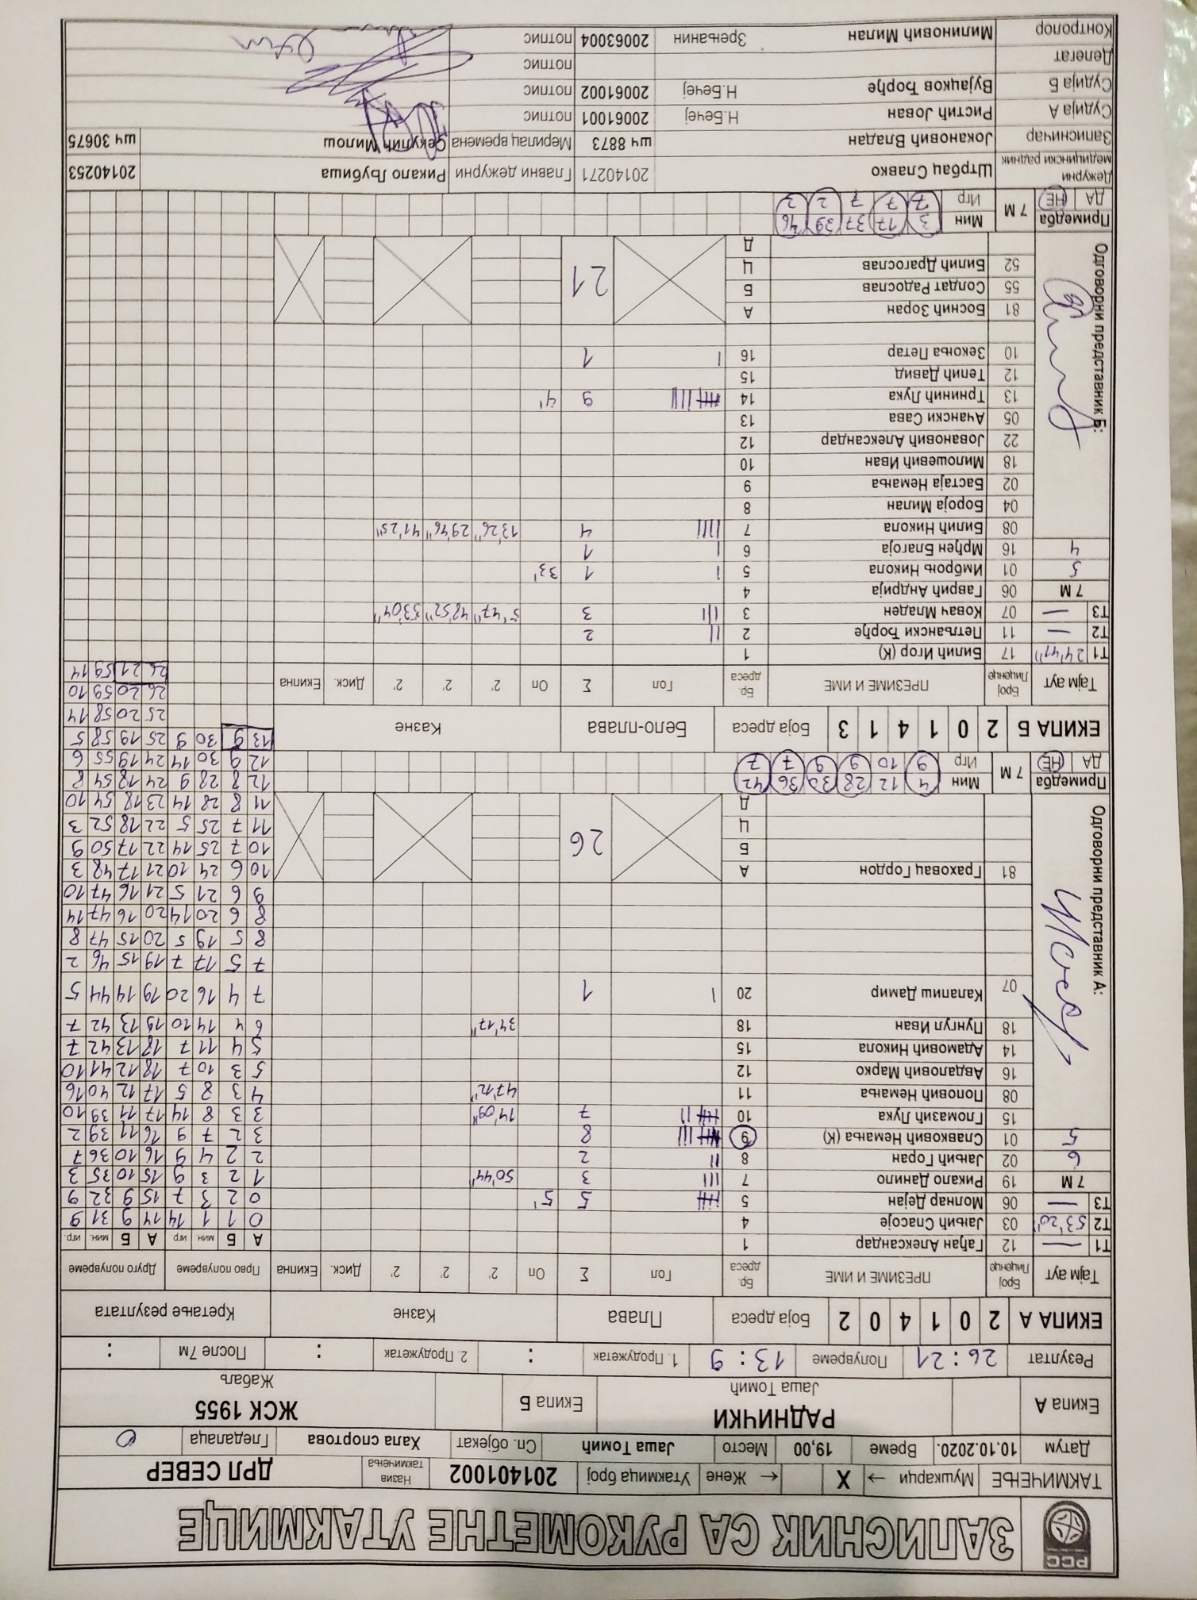 РСС
ЗАПИСНИК СА РУКОМЕТНЕ УТАКМИЦЕ
ТАКМИЧЕЊЕ Мушкарци → X ← Жене Утакмица број 201401002 Назив такмичења ДРЛ СЕВЕР
Датум 10.10.2020. Време 19,00 Место Јаша Томић Сп. објекат Хала спортова Гледалаца 0
Екипа А РАДНИЧКИ Јаша Томић Екипа Б ЖСК 1955 Жабаљ
Резултат 26:21 Полувреме 13:9 1. Продужетак : 2. Продужетак : После 7м :
ЕКИПА А 2 0 1 4 0 2 Боја дреса Плава Казне Кретање резултата
Тајм аут Број Лиценце ПРЕЗИМЕ И ИМЕ Бр. дреса Гол Σ Оп 2' 2' 2' Диск. Екипна Прво полувреме Друго полувреме
А Б мин. игр А Б мин. игр.
Т1 — 12 Гађан Александар 1
Т2 53'20" 03 Јањић Спасоје 4
Т3 — 06 Молнар Дејан 5 5 5'
7 М 19 Рикало Данило 7 3 50'44"
6 02 Јањић Горан 8 2
5 01 Славковић Немања (К) 9 8
15 Гломазић Лука 10 7 14'09"
08 Поповић Немања 11 47'12"
16 Авдаловић Марко 12
14 Адамовић Никола 15
18 Пунгул Иван 18 34'17"
07 Калапиш Дамир 20 1
Одговорни представник А:
81 Граховац Гордон А
Б
Ц
Д
26
Примедба ДА НЕ 7 М Мин 4 12 28 30 36 42
Игр 9 10 9 9 7 7
0 1 1 14 14 9 31 9
0 2 3 7 15 9 32 9
1 2 3 9 15 10 35 3
2 2 4 9 16 10 36 7
3 2 7 9 16 11 39 2
3 3 8 14 17 11 39 10
4 3 8 5 17 12 40 16
5 3 10 7 18 12 41 10
5 4 11 7 18 13 42 7
6 4 14 10 19 13 42 7
7 4 16 20 19 14 44 5
7 5 17 7 19 15 46 2
8 5 19 5 20 15 47 8
8 6 20 14 20 16 47 14
9 6 21 5 21 16 47 10
10 6 24 10 21 17 48 3
10 7 25 14 22 17 50 9
11 7 25 5 22 18 52 3
11 8 28 14 23 18 54 10
12 8 28 9 24 18 54 8
12 9 30 14 24 19 55 6
13 9 30 9 25 19 58 5
25 20 58 14
26 20 59 10
26 21 59 14
ЕКИПА Б 2 0 1 4 1 3 Боја дреса Бело-плава Казне
Тајм аут Број Лиценце ПРЕЗИМЕ И ИМЕ Бр. дреса Гол Σ Оп 2' 2' 2' Диск. Екипна
Т1 24'41" 17 Билић Игор (К) 1
Т2 — 11 Петљански Ђорђе 2 2
Т3 — 07 Ковач Младен 3 3 5'47" 48'52" 53'04"
7 М 06 Гаврић Андрија 4
5 01 Имброњ Никола 5 1 33'
4 16 Мрђен Благоја 6 1
08 Билић Никола 7 4 13'26" 29'46" 41'25"
04 Бороја Милан 8
02 Бастаја Немања 9
18 Милошевић Иван 10
22 Јовановић Александар 12
05 Ачански Сава 13
13 Трнинић Лука 14 9 4'
12 Тепић Давид 15
10 Зекоња Петар 16 1
Одговорни представник Б:
81 Боснић Зоран А
55 Солдат Радослав Б
52 Билић Драгослав Ц
Д
21
Примедба ДА НЕ 7 М Мин 3 17 37 39 46
Игр 7 7 7 2 3
Дежурни медицински радник Штрбац Славко 20140271 Главни дежурни Рикало Љубиша 20140253
Записничар Јокановић Владан шч 8873 Мерилац времена Секулић Милош шч 30675
Судија А Ристић Јован Н.Бечеј 20061001 потпис
Судија Б Вујацков Ђорђе Н.Бечеј 20061002 потпис
Делегат потпис
Контролор Милиновић Милан Зрењанин 20063004 потпис